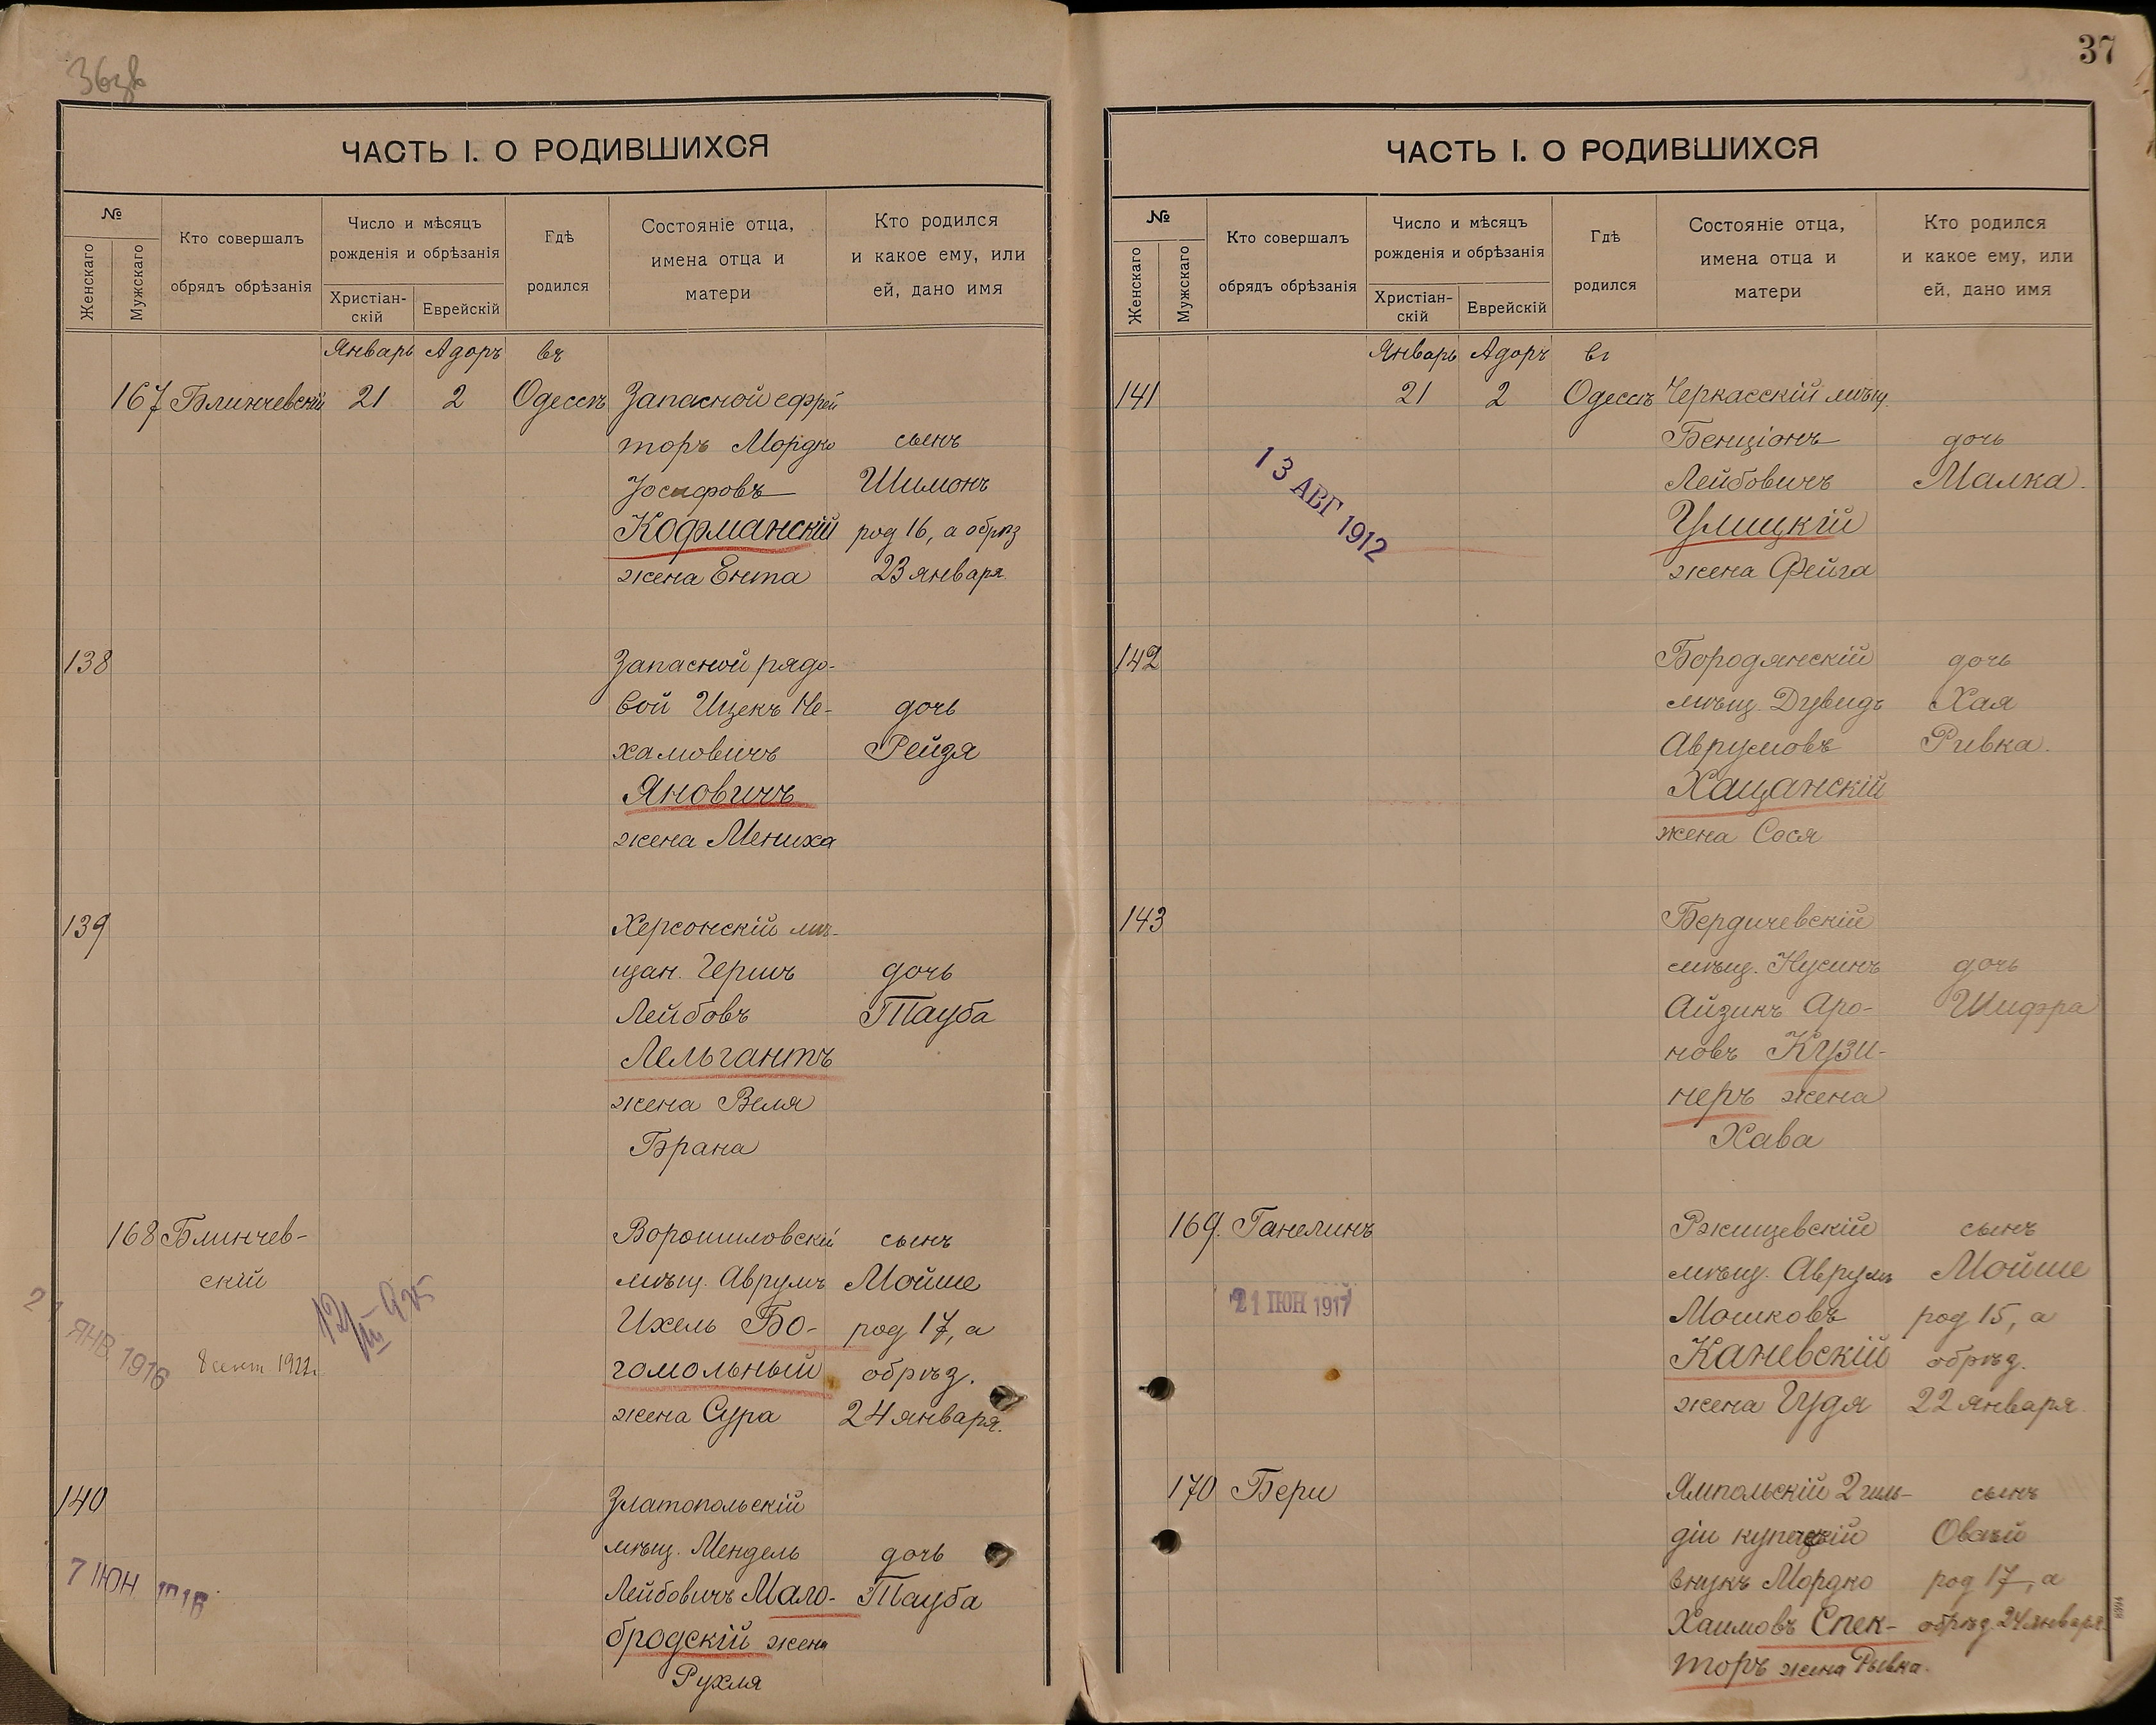 37
ЧАСТЬ I. О РОДИВШИХСЯ
№
Женскаго
Мужскаго
Кто совершалъ
обрядъ обрѣзанія
Число и мѣсяцъ
рожденія и обрѣзанія
Христіан-
скій
Еврейскій
Гдѣ
родился
Состояніе отца,
имена отца и
матери
Кто родился
и какое ему, или
ей, дано имя
Январь Адоръ въ
167 Блинчевскій 21 2 Одессѣ Запасной ефрей
торъ Мордко сынъ
Іосифовъ Шимонъ
Кофманскій род 16, а обрѣз
жена Ента 23 января
138 Запасной рядо-
вой Ицекъ Не- дочь
хамовичъ Рейзя
Яновичъ
жена Мениха
139 Херсонскій мѣ-
щан. Гершъ дочь
Лейбовъ Тауба
Лельгантъ
жена Веля
Брана
168 Блинчев- Ворошиловскій сынъ
скій мѣщ. Аврумъ Мойше
Ихель Бо- род 17, а
21 ЯНВ. 1916 8 сент 1922г. гомольный обрѣз.
жена Сура 24 января.
140 Златопольскій
мѣщ. Мендель дочь
7 ІЮН 1916 Лейбовичъ Мало- Тауба
бродскій жена
Рухля
ЧАСТЬ I. О РОДИВШИХСЯ
№
Женскаго
Мужскаго
Кто совершалъ
обрядъ обрѣзанія
Число и мѣсяцъ
рожденія и обрѣзанія
Христіан-
скій
Еврейскій
Гдѣ
родился
Состояніе отца,
имена отца и
матери
Кто родился
и какое ему, или
ей, дано имя
Январь Адоръ въ
141 21 2 Одессѣ Черкасскій мѣщ.
Бенціонъ дочь
13 АВГ 1912 Лейбовичъ Малка.
Улицкій
жена Фейга
142 Бородянскій дочь
мѣщ. Дувидъ Хая
Аврумовъ Ривка.
Хащанскій
жена Сося
143 Бердичевскій
мѣщ. Нусинъ дочь
Айзикъ Аро- Шифра
новъ Кузи-
неръ жена
Хава
169. Ганелинъ Ржищевскій сынъ
мѣщ. Аврумъ Мойше
21 ІЮН 1917 Мошковъ род 15, а
Каневскій обрѣз.
жена Гудя 22 января.
170 Бери Ямпольскій 2 гиль-
сынъ
діи купецкій Овшій
внукъ Мордко род 17, а
Хаимовъ Спек- обрѣз. 24 января.
торъ жена Рывка.